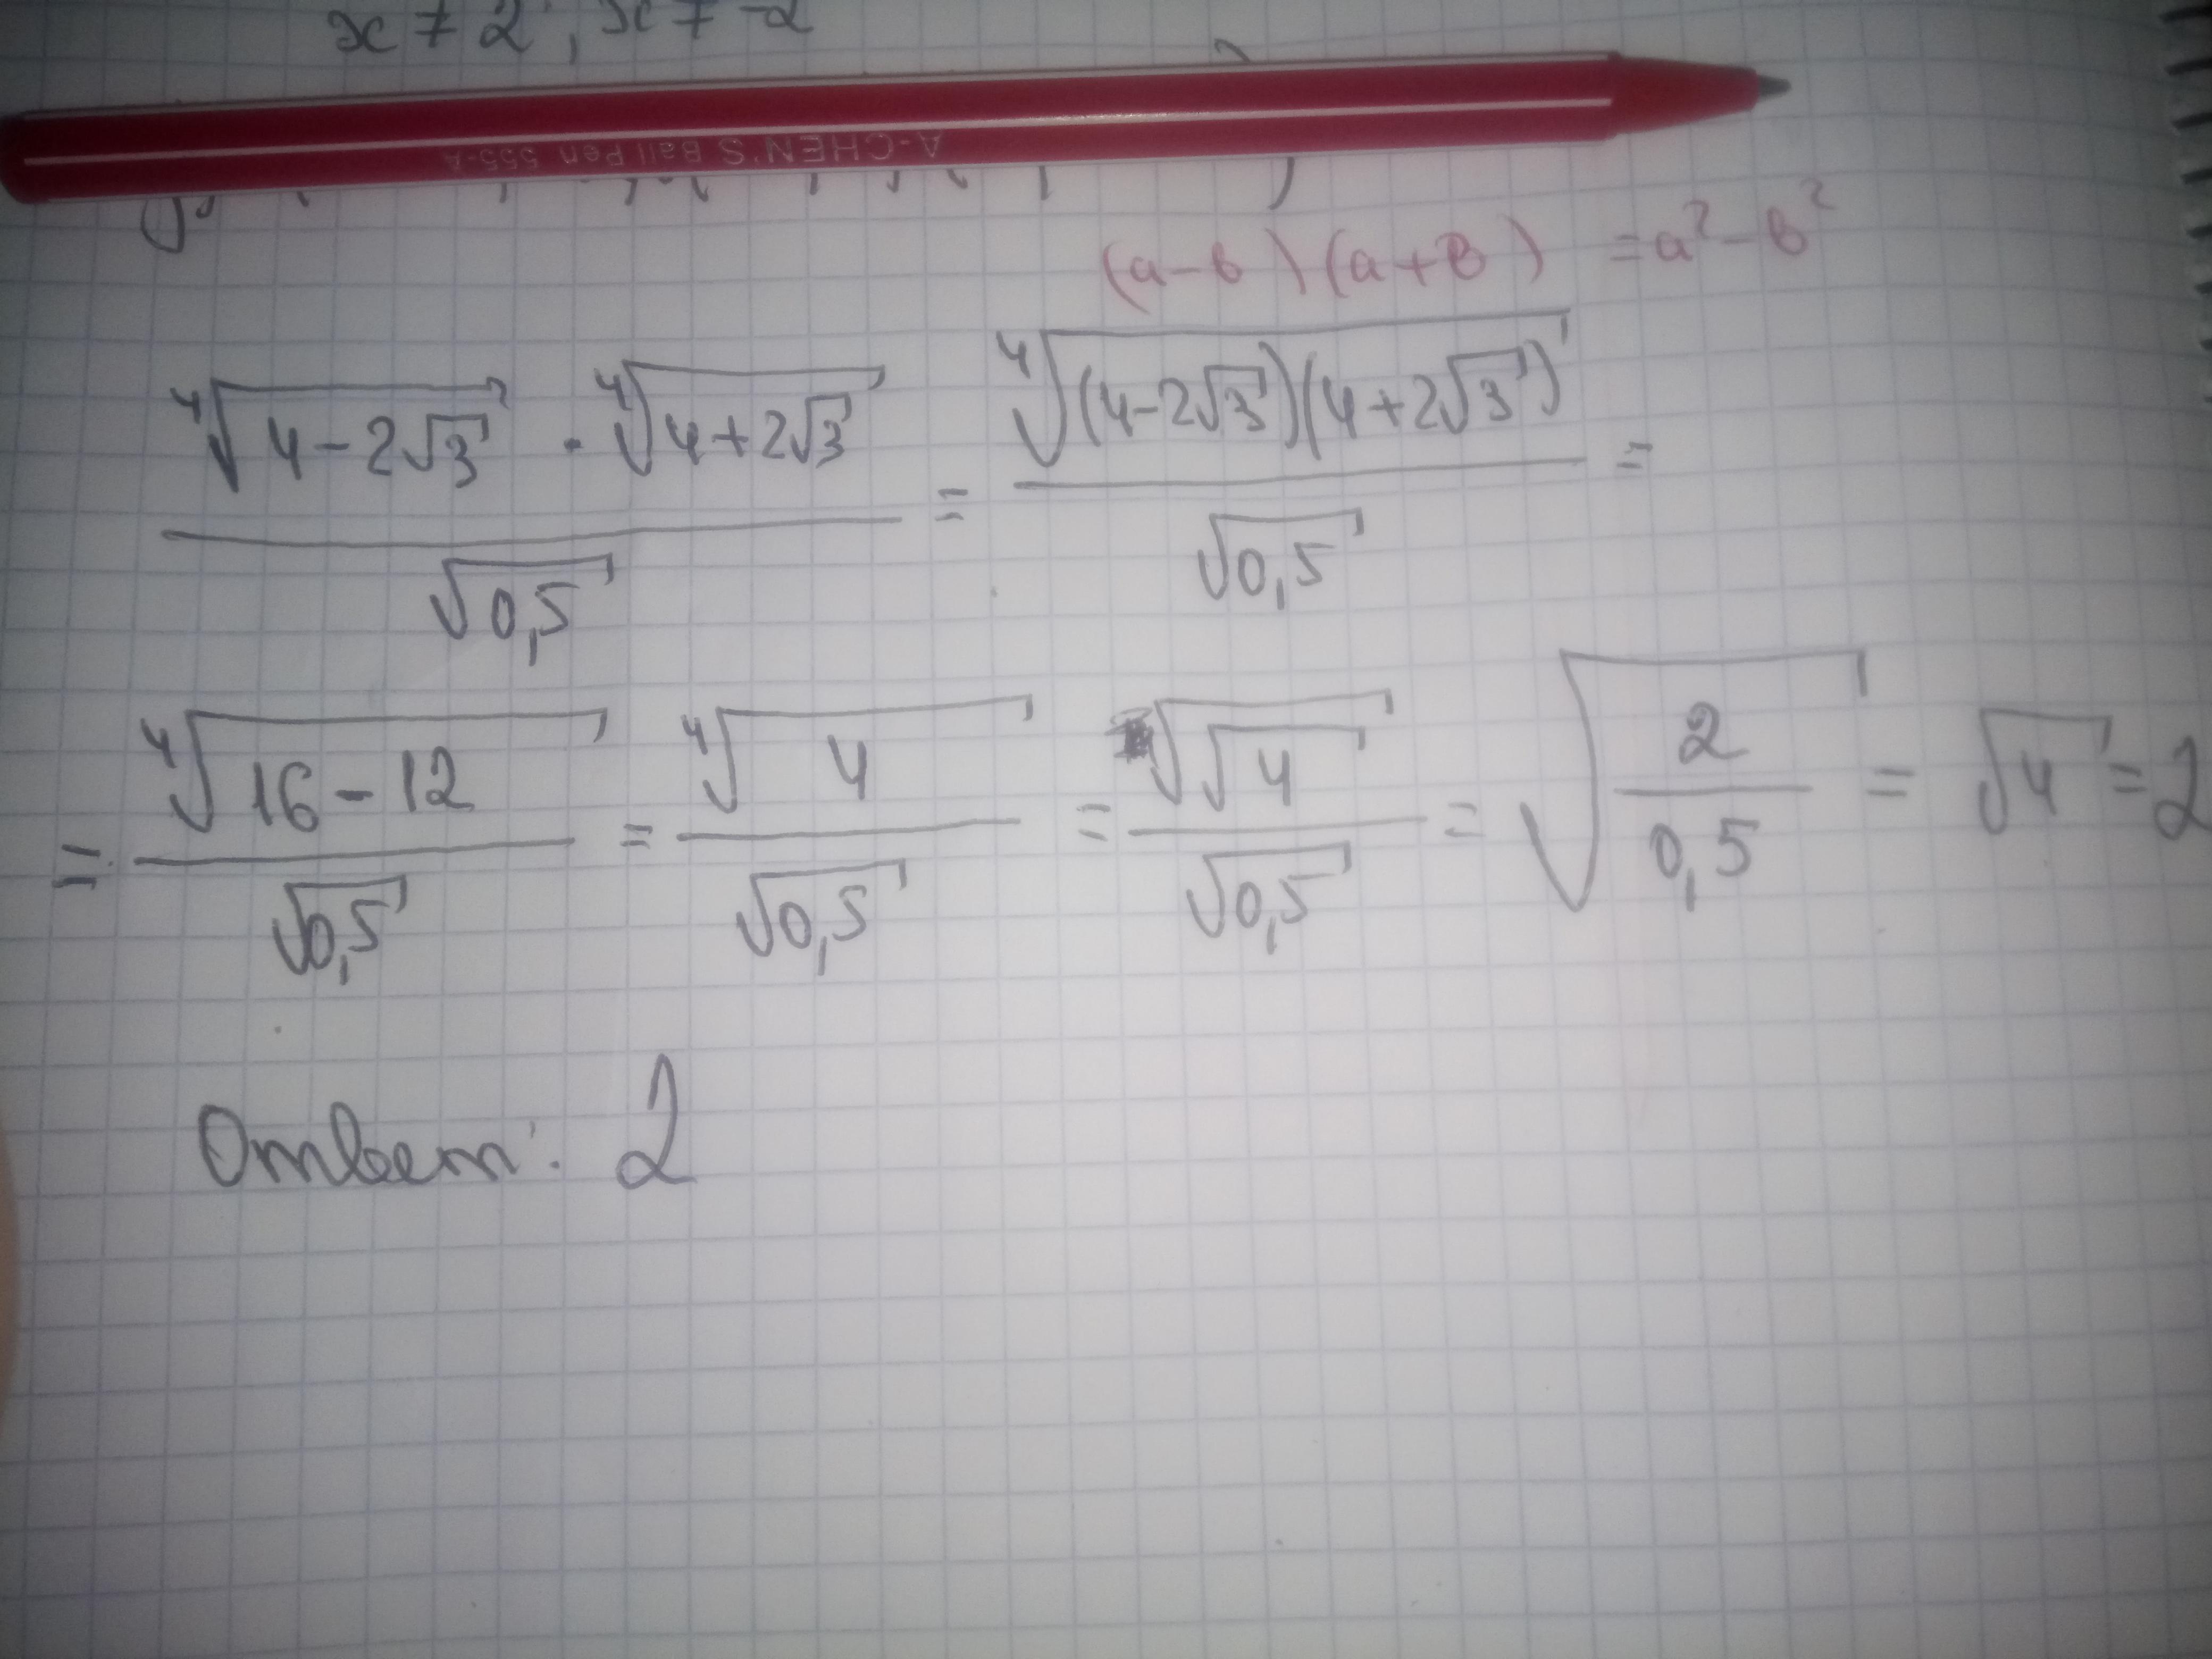 x ≠ 2 ; x ≠ -2
A-CHEN'S Ball Pen 555-A
(a-в)(a+в) = a² - в²
⁴√(4-2√3) · ⁴√(4+2√3) / √0,5 = ⁴√((4-2√3)(4+2√3)) / √0,5 =
= ⁴√(16-12) / √0,5 = ⁴√4 / √0,5 = √√4 / √0,5 = √(2/0,5) = √4 = 2
Ответ: 2